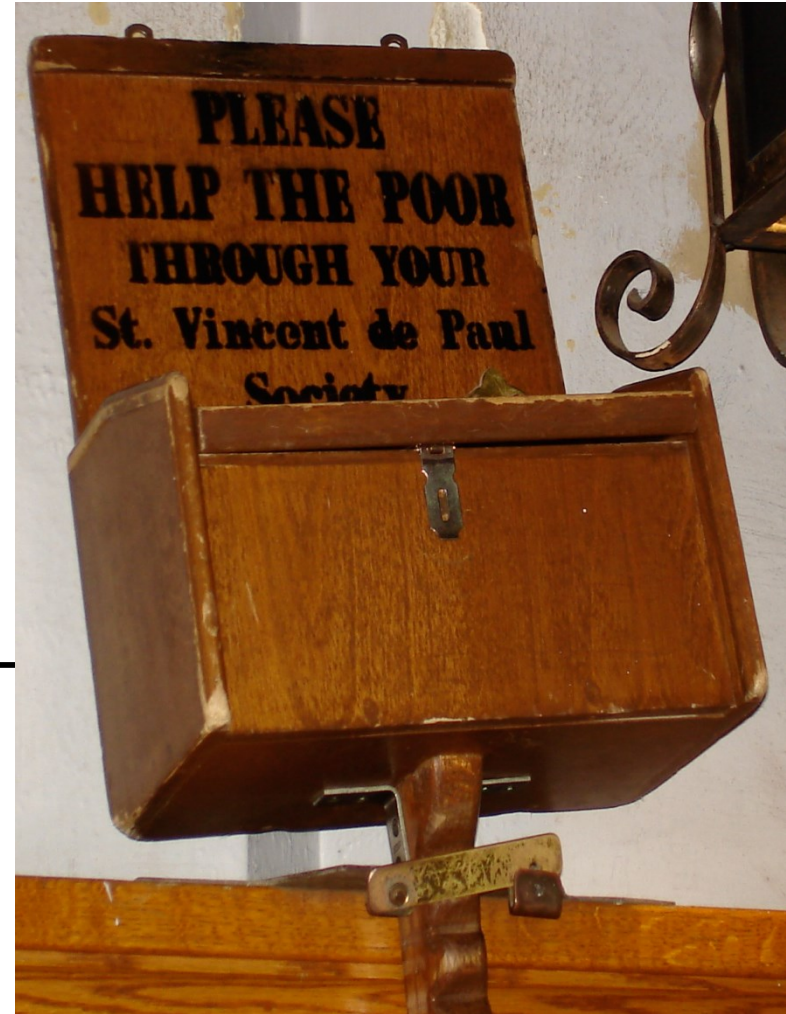 PLEASE
HELP THE POOR
THROUGH YOUR
St. Vincent de Paul
Society